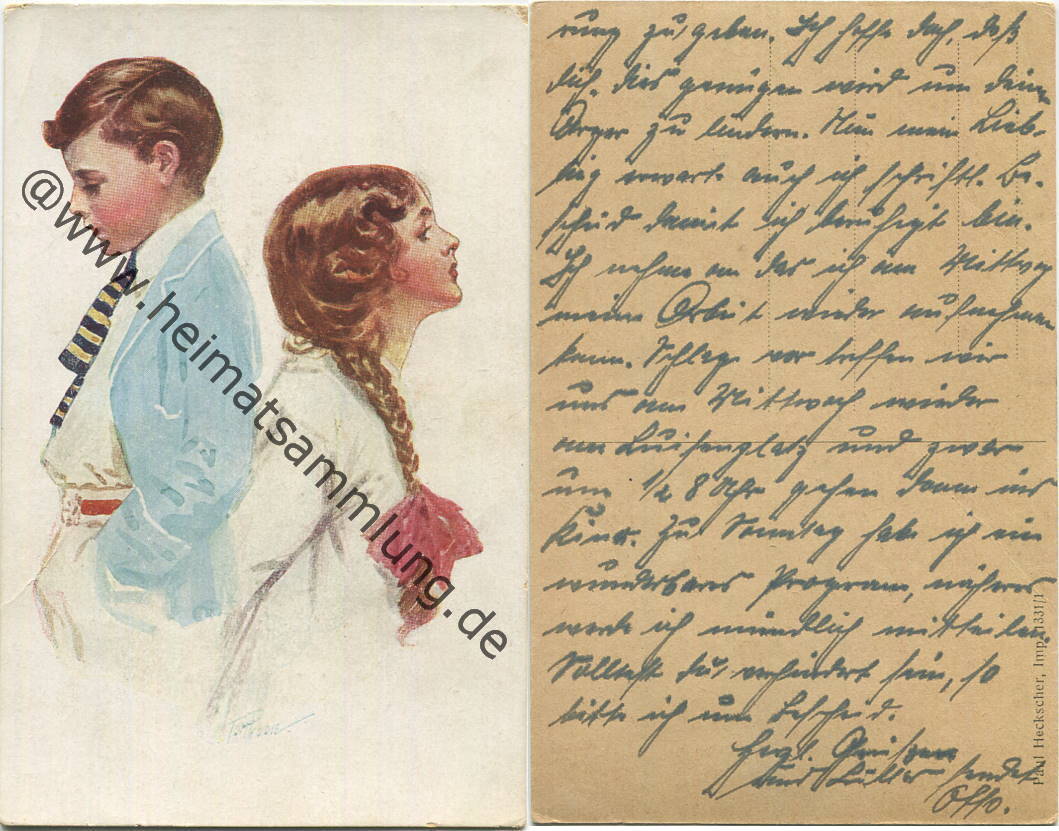 @www.heimatsammlung.de
rung zu geben. Ich hoffe doch, daß
dich dies genügen wird um deinen
Ärger zu lindern. Nun mein Lieb-
ling erwarte auch ich schriftl. Be-
scheid damit ich beruhigt bin.
Ich nehme an das ich am Mittwoch
meine Arbeit wieder aufnehmen
kann. Schlage vor treffen wir
uns am Mittwoch wieder
am Luisenplatz und zwar
um 1/2 8 Uhr gehen dann ins
Kino. Zu Sonntag habe ich ein
wunderbares Program, näheres
werde ich mündlich mitteilen.
Solltest du verhindert sein, so
bitte ich um Bescheid.
Herzl.
und sendet
Otto.
Paul Heckscher, Imp. 1331/1